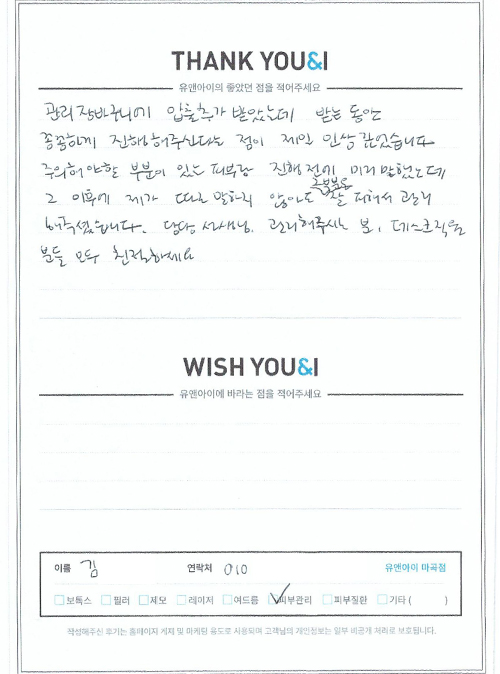 THANK YOU&I
유앤아이의 좋았던 점을 적어주세요
관리 장바구니에 압출추가 받았는데 받는 동안
꼼꼼하게 진행해주신다는 점이 제일 인상깊었습니다
주의해야할 부분이 있는 피부라 진행 전에 미리 말했는데
그부분은
그 이후에 제가 따로 말하지 않아도 잘 피해서 관리
해주셨습니다. 담당 선생님, 관리해주시는 분, 데스크직원
분들 모두 친절하세요
WISH YOU&I
유앤아이에 바라는 점을 적어주세요
이름 김 연락처 010 유앤아이 마곡점
보톡스 필러 제모 레이저 여드름 피부관리 피부질환 기타 ( )
작성해주신 후기는 홈페이지 게재 및 마케팅 용도로 사용되며 고객님의 개인정보는 일부 비공개 처리로 보호됩니다.